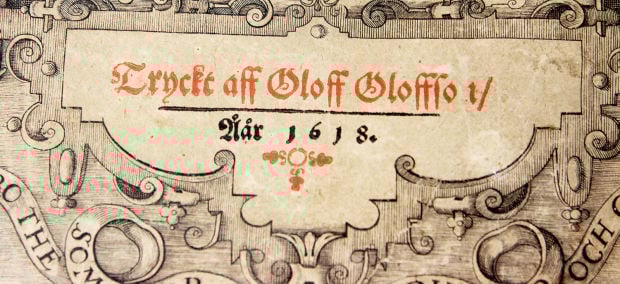 Tryckt aff Oloff Oloffſo n/
Åår 1618.
RO THE
SOM
OCH